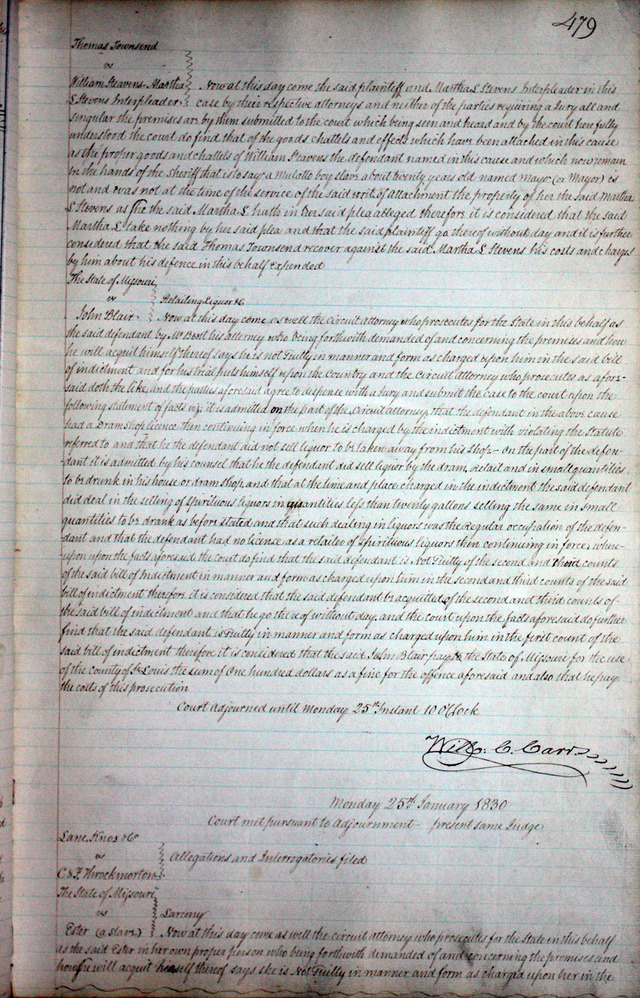 479
Thomas Townsend
vs
William Steavens - Martha
L Stevens Interpleader
Now at this day come the said plaintiff and Martha L Stevens Interpleader in this
case by their respective attorneys and neither of the parties requiring a Jury all and
singular the premises are by them submitted to the court which being seen and heard and by the court here fully
understood the court do find that of the goods chattels and effects which have been attached in this cause
as the proper goods and chattels of William Steavens the defendant named in this cause and which now remain
in the hands of the Sheriff that is to say a mulatto boy slave about twenty years old named Major (or Mayor) is
not and was not at the time of the service of the said writ of attachment the property of her the said Martha
L Stevens as she the said Martha L hath in her said plea alleged therefore it is considered that the said
Martha L take nothing by her said plea and that the said plaintiff go thereof without day and it is further
considered that the said Thomas Townsend recover against the said Martha L Stevens his costs and charges
by him about his defence in this behalf expended
The State of Missouri
vs
Retailing Liquor &c
John Blair
Now at this day come as well the circuit attorney who prosecutes for the State in this behalf as
the said defendant by Mr his attorney who being forthwith demanded of and concerning the premises and how
he will acquit himself thereof says he is not Guilty in manner and form as charged upon him in the said bill
of indictment and for his trial puts himself upon the Country and the Circuit attorney who prosecutes as afore-
said doth the like, and the parties aforesaid agree to dispense with a Jury and submit the case to the court upon the
following statement of facts viz it is admitted on the part of the circuit attorney, that the defendant in the above cause
had a Dram Shop licence then continuing in force when he is charged by the indictment with violating the Statute
referred to and that he the defendant did not sell liquor to be taken away from his Shop - on the part of the defen-
dant it is admitted by his counsel that he the defendant did sell liquor by the dram, retail and in small quantities
to be drunk in his house or dram shop, and that at the time and place charged in the indictment the said defendant
did deal in the selling of spirituous liquors in quantities less than twenty gallons selling the same in small
quantities to be drank as before stated and that such dealing in liquors was the regular occupation of the defen-
dant and that the defendant had no licence as a retailer of spirituous liquors then continuing in force, where-
upon upon the facts aforesaid the court do find that the said defendant is Not Guilty of the second and third counts
of the said bill of Indictment in manner and form as charged upon him in the second and third counts of the said
bill of indictment therefore it is considered that the said defendant be acquitted of the second and third counts of
the said bill of indictment and that he go thereof without day, and the court upon the facts aforesaid do further
find that the said defendant is Guilty in manner and form as charged upon him in the first count of the
said bill of indictment therefore it is considered that the said John Blair pay to the State of Missouri for the use
of the county of St Louis the sum of One Hundred dollars as a fine for the offence aforesaid and also that he pay
the costs of this prosecution
Court Adjourned until Monday 25th Instant 10 O'Clock
Will. C. Carr
Monday 25th January 1830
Court met pursuant to Adjournment - present same Judge
Lane Knox &Co
vs
C & F Throckmorton
Allegations and Interrogatories filed
The State of Missouri
vs
Larceny
Ester (a slave)
Now at this day come as well the circuit attorney who prosecutes for the State in this behalf
as the said Ester in her own proper person who being forthwith demanded of and concerning the premises and
how she will acquit herself thereof says she is Not Guilty in manner and form as charged upon her in the